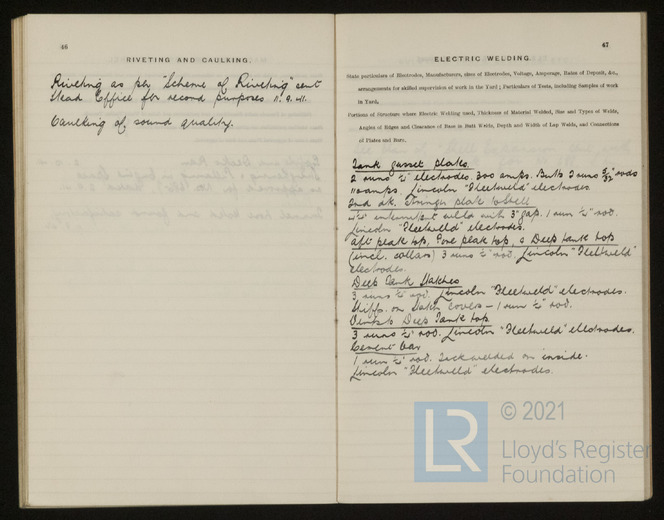 46
RIVETING AND CAULKING.
Riveting as per "Scheme of Riveting" sent
Head Office for record purposes 11.9.41.
Caulking of sound quality.
47
ELECTRIC WELDING
State particulars of Electrodes, Manufacturers, sizes of Electrodes, Voltage, Amperage, Rates of Deposit, &c.,
arrangements for skilled supervision of work in the Yard; Particulars of Tests, including Samples of work
in Yard.
Portions of Structure where Electric Welding used, Thickness of Material Welded, Size and Types of Welds,
Angles of Edges and Clearance of Base in Butt Welds, Depth and Width of Lap Welds, and Connections
of Plates and Bars.
Tank gusset plates.
2 runs ¼" electrodes. 300 amps. Butts 2 runs 5/32" rods
110 amps. Lincoln "Fleetweld" electrodes.
2nd dk. Stringer plate to shell
intermittent welds with 3" gap. 1 run ¼" rod.
Lincoln "Fleetweld" electrodes.
Aft peak top, Fore peak top, & Deep tank top
(incl. collars) 3 runs ¼" rod. Lincoln "Fleetweld"
electrodes.
Deep Tank Hatches
3 runs ¼" rod. Lincoln "Fleetweld" electrodes.
Stiffs. on Hatch covers – 1 run ¼" rod.
Vents to Deep Tank top
3 runs ¼" rod. Lincoln "Fleetweld" electrodes.
Cement bar
1 run ¼" rod. Tack welded on inside.
Lincoln "Fleetweld" electrodes.
LR
© 2021
Lloyd's Register
Foundation